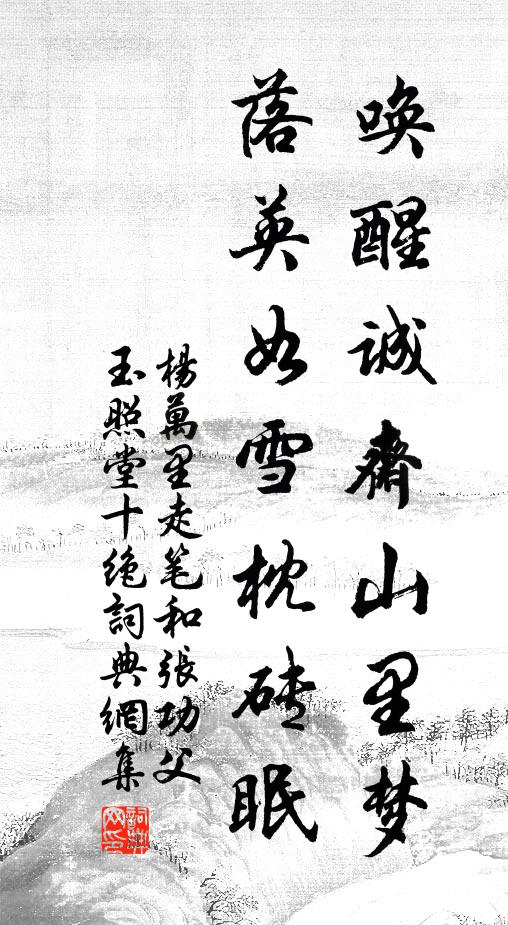 唤醒诚斋山里梦
落英如雪枕砖眠
杨万里走笔和张功父
玉照堂十绝词典网集